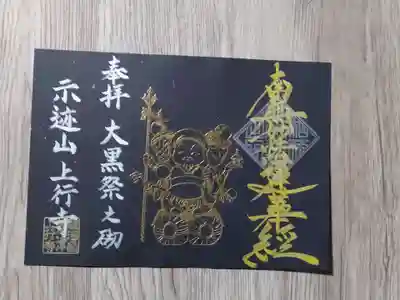 南無妙法蓮華經
奉拝 大黒祭之砌
示迹山上行寺